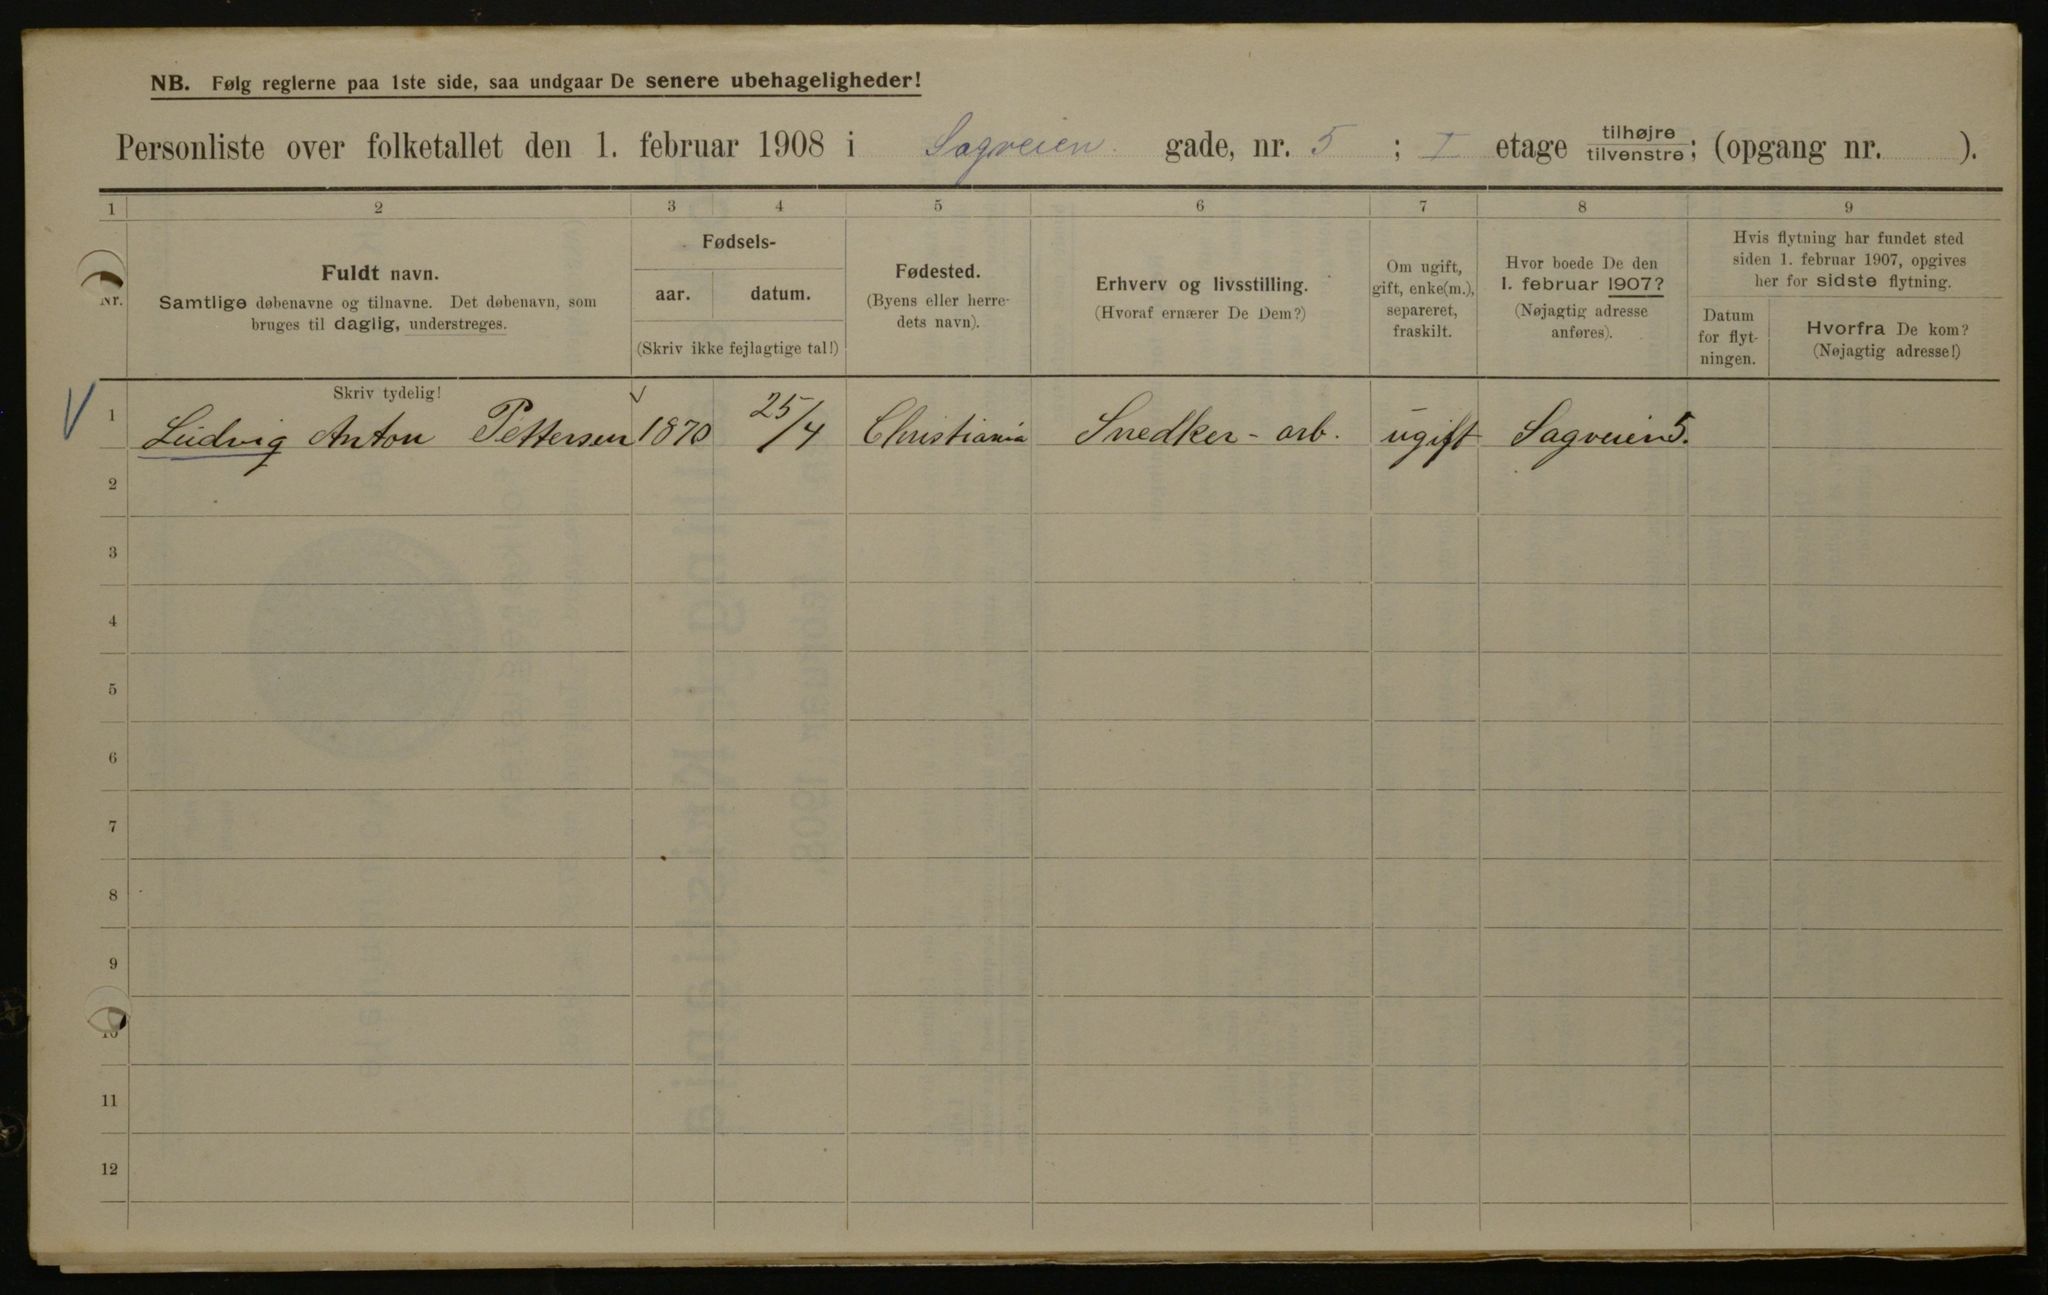 NB. Følg reglerne paa 1ste side, saa undgaar De senere ubehageligheder!
Personliste over folketallet den 1. februar 1908 i Sagveien gade, nr. 5 ; I etage tilhøjre/tilvenstre; (opgang nr. ).
1 2 3 4 5 6 7 8 9
Nr.
Fuldt navn.
Samtlige døbenavne og tilnavne. Det døbenavn, som
bruges til daglig, understreges.
Fødsels-
aar. datum.
(Skriv ikke fejlagtige tal!)
Fødested.
(Byens eller herre-
dets navn).
Erhverv og livsstilling.
(Hvoraf ernærer De Dem?)
Om ugift,
gift, enke(m.),
separeret,
fraskilt.
Hvor boede De den
1. februar 1907?
(Nøjagtig adresse
anføres).
Hvis flytning har fundet sted
siden 1. februar 1907, opgives
her for sidste flytning.
Datum
for flyt-
ningen.
Hvorfra De kom?
(Nøjagtig adresse!)
Skriv tydelig!
1 Ludvig Anton Pettersen 1870 25/4 Christiania Snedker-arb. ugift Sagveien 5.
2
3
4
5
6
7
8
9
10
11
12